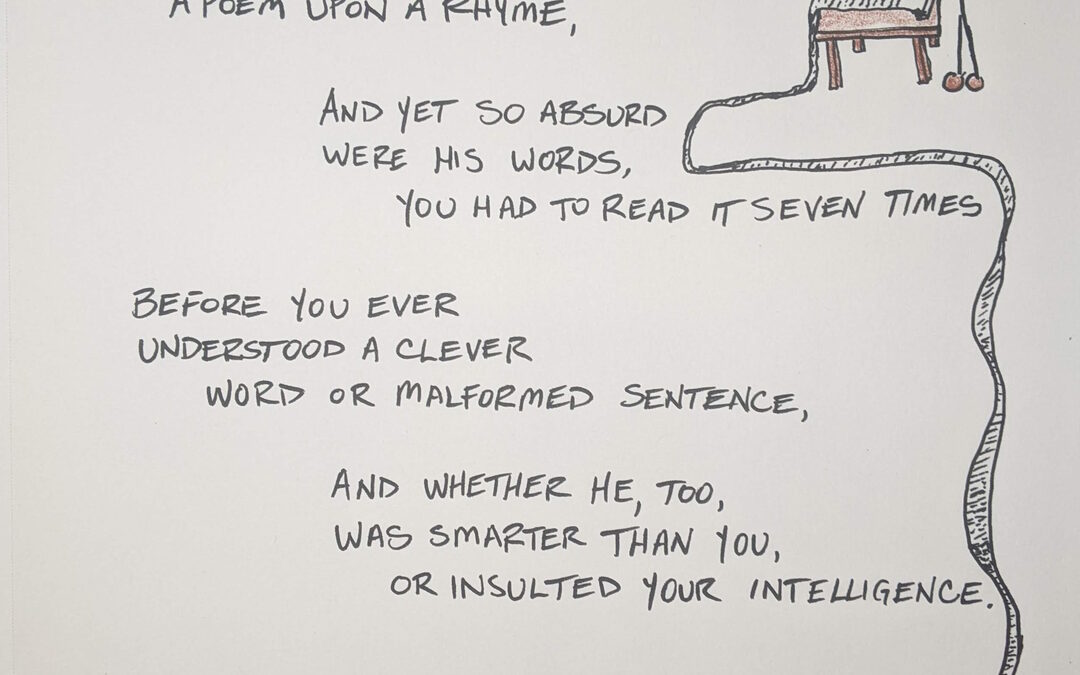 A POEM UPON A RHYME,
AND YET SO ABSURD
WERE HIS WORDS,
YOU HAD TO READ IT SEVEN TIMES
BEFORE YOU EVER
UNDERSTOOD A CLEVER
WORD OR MALFORMED SENTENCE,
AND WHETHER HE, TOO,
WAS SMARTER THAN YOU,
OR INSULTED YOUR INTELLIGENCE.